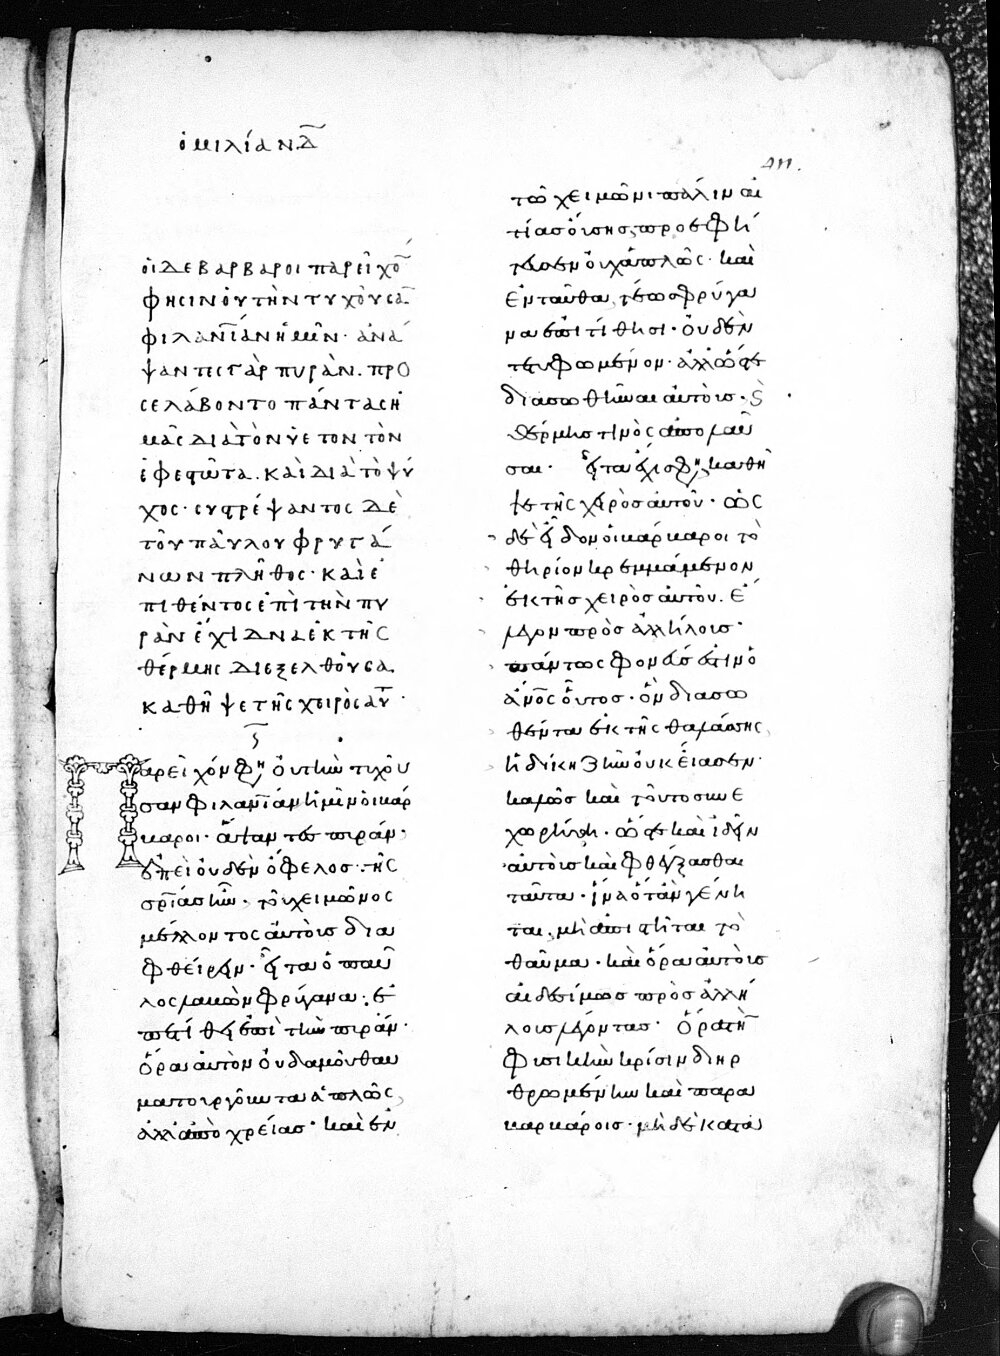 ὁμιλία ΝΔ
οἱ δὲ βάρβαροι παρεῖχο
φησιν οὐ τὴν τυχοῦσα
φιλανίαν ἡμῖν· ἀνά
ψαντες γὰρ πυρὰν· προ
σελάβοντο πάντας ἡ
μᾶς διὰ τὸν ὑετὸν τὸν
ἐφεστῶτα· καὶ διὰ τὸ ψύ
χος· συστρέψαντος δὲ
τοῦ παύλου φρυγά
νων πλῆθος· καὶ ἐ
πιθέντος ἐπὶ τὴν πυ
ρὰν ἔχιδνα ἐκ τῆς
θέρμης διεξελθοῦσα
καθῆψε τῆς χειρὸς αὐτ
Παρεῖχον φη οὐ τὴν τυχοῦ
σαν φιλανίαν ἡμῖν οἱ βάρ
βαροι· ἀνῆψαν τε πυράν·
ἐπεὶ οὐδὲν ὄφελος τῆς
σρίας ἦν· τοῦ χειμῶνος
μέλλοντος αὐτοὺς δια
φθείρειν· εἶτα ὁ παῦ
λος λαβὼν φρύγανα· ἐ
πιτίθησιν ἐπὶ τὴν πυράν·
ὅρα αὐτὸν οὐδαμοῦ θαυ
ματουργοῦντα ἁπλῶς
ἀλλ' ἀπὸ χρείας· καὶ ἐν
τῶ χειμῶνι πάλιν αἰ
τίας οὔσης προεφή
τευσεν οὐχ ἁπλῶς· καὶ
ἐνταῦθα πάλιν φρύγα
να ἐπιτίθησι· οὐδὲν
τετυφωμένον· ἀλλ' ὥστε
διασωθῆναι αὐτοὺς· καὶ
θέρμης τινὸς ἀπολαῦ
σαι· εἶτα ἔχις φη καθῆ
ψε τῆς χειρὸς αὐτοῦ· ὡς
δὲ εἶδον οἱ βάρβαροι τὸ
θηρίον κρεμμάμενον
ἐκ τῆς χειρὸς αὐτοῦ· ἔ
λεγον πρὸς ἀλλήλους·
πάντως φονεύς ἐστιν ὁ
ἄνος οὗτος· ὃν διασω
θέντα ἐκ τῆς θαλάσσης
ἡ δίκη ζῆν οὐκ εἴασεν·
καλῶς καὶ τοῦτο συνε
χωρήθη· ὥστε καὶ ἰδεῖν
αὐτοὺς καὶ φθέγξασθαι
ταῦτα· ἵνα ὅταν γένη
ται· μὴ ἀπιστῆται τὸ
θαῦμα· καὶ ὅρα αὐτοὺς
αἰδεσίμως πρὸς ἀλλή
λους λέγοντας· ὅρα τὴν
φυσικὴν κρίσιν διηρ
θρωμένην καὶ παρὰ
βαρβάροις· μὴ δὲ κατα